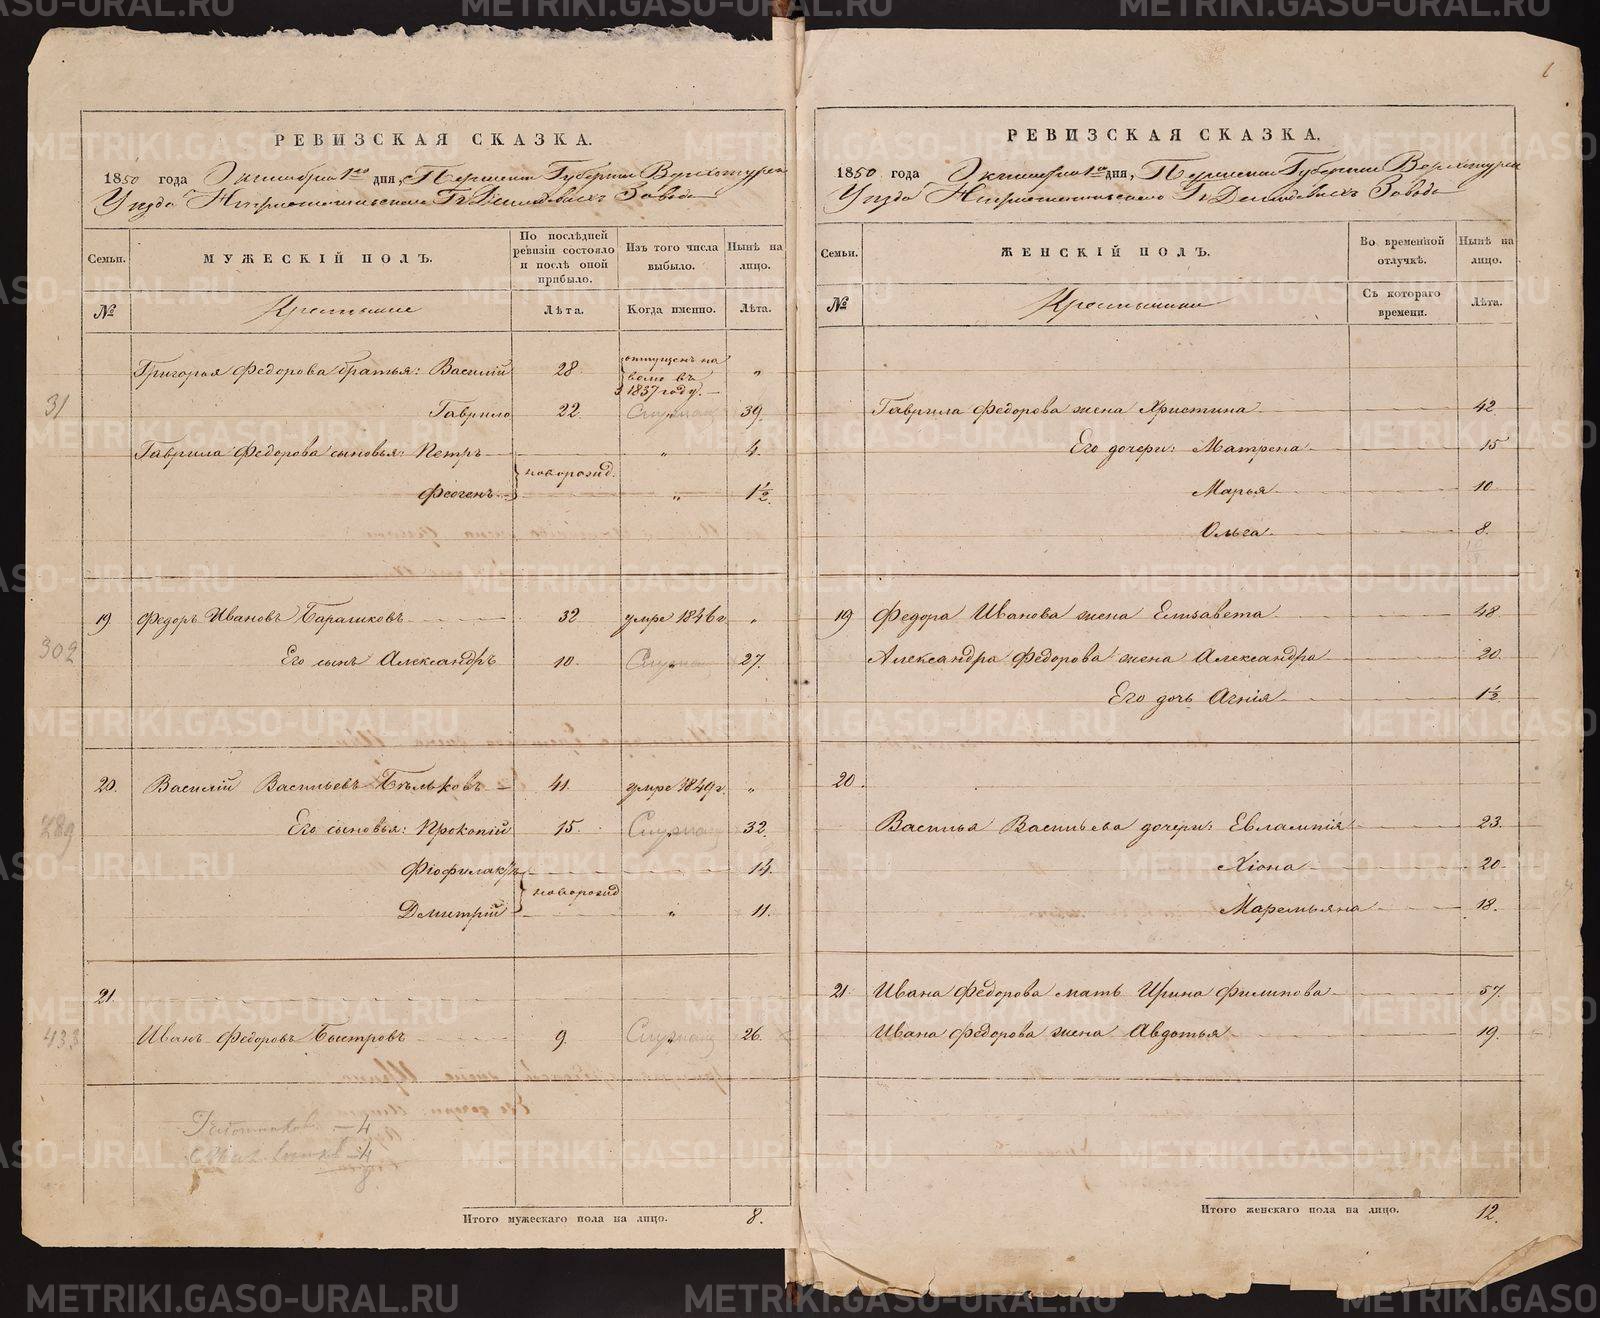 РЕВИЗСКАЯ СКАЗКА.
1850 года Октября 1го дня, Пермской Губернии Верхотурск
Уезда Гг. Демидовыхъ Завода
Семьи.
МУЖЕСКІЙ ПОЛЪ.
По послѣдней ревизіи состояло и послѣ оной прибыло.
Изъ того числа выбыло.
Нынѣ на лицо.
№
Крестьяне
Лѣта.
Когда именно.
Лѣта.
Григорья Федорова братья: Василій 28 отпущенъ на волю въ 1837 году. „
31
Гаврило 22. 39.
Гаврила Федорова сыновья: Петръ „ 4.
новорожд.
Феогенъ „ 1½
19 Федоръ Ивановъ Барашковъ 32 умре 1846 г. „
302
Его сынъ Александръ 10. 27.
20. Василій Васильевъ Бѣльковъ 41. умре 1849 г. „
289
Его сыновья: Прокопій 15. 32.
Фіофилактъ 14.
новорожд
Демитрій „ 11.
21.
433
Иванъ Федоровъ Быстровъ 9. 26.
— 4
— 4
8
Итого мужескаго пола на лицо. 8.
РЕВИЗСКАЯ СКАЗКА.
1850 года Октября 1го дня, Пермской Губерніи Верхотурск
Уезда Гг. Демидовыхъ Завода
Семьи.
ЖЕНСКІЙ ПОЛЪ.
Во временной отлучкѣ.
Нынѣ на лицо.
№
Крестьянки
Съ котораго времени.
Лѣта.
Гаврила Федорова жена Христина 42
Его дочери: Матрена 15
Марья 10
Ольга 8.
19 Федора Иванова жена Елизавета 48.
Александра Федорова жена Александра 20.
Его дочь Агнія 1½
20.
Василья Васильева дочери: Евлампія 23.
Хіона 20.
Маремьяна 18.
21. Ивана Федорова мать Ирина Филипова 57.
Ивана Федорова жена Авдотья 19.
Итого женскаго пола на лицо. 12.
METRIKI.GASO-URAL.RU